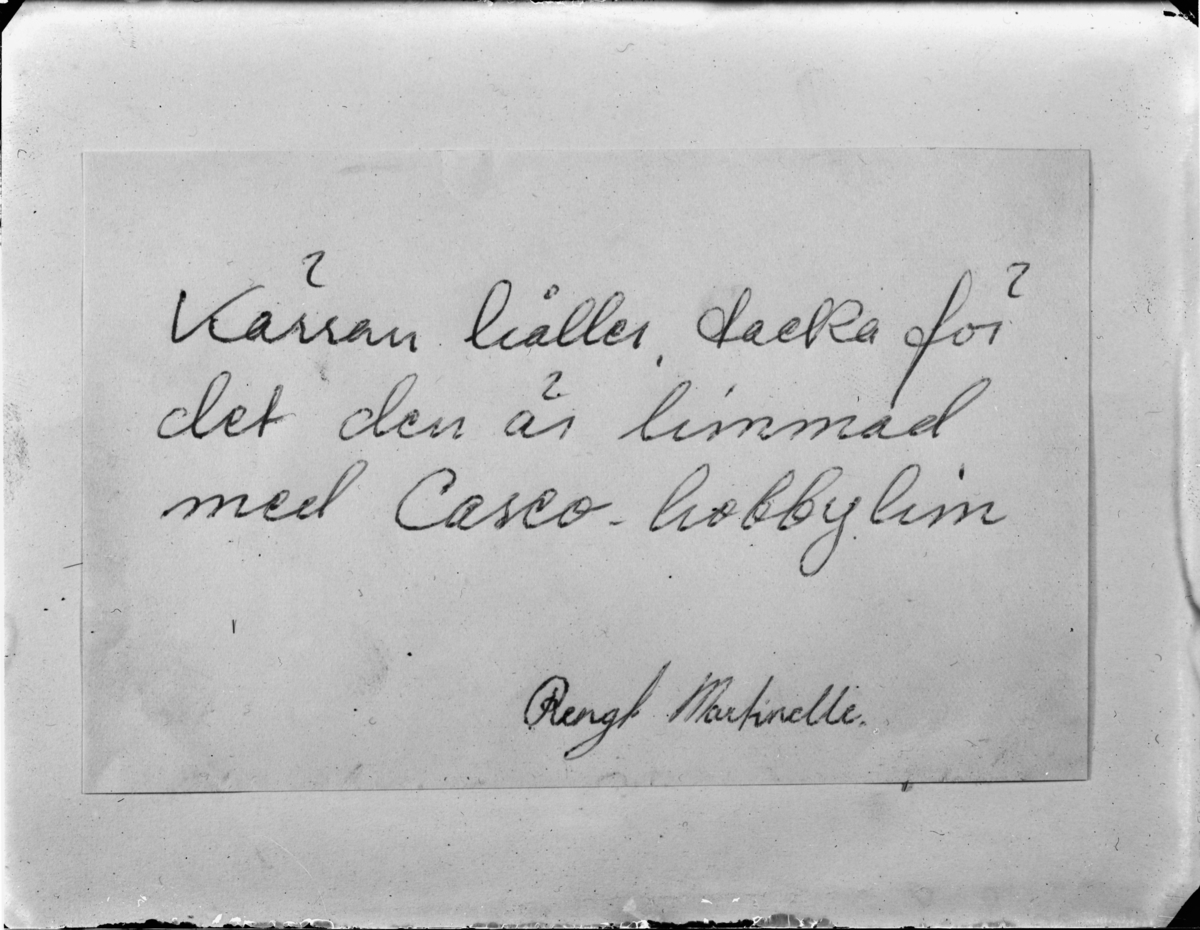 Kärran håller, tacka för
det den är limmad
med Casco-hobbylim
Bengt Martinelle.